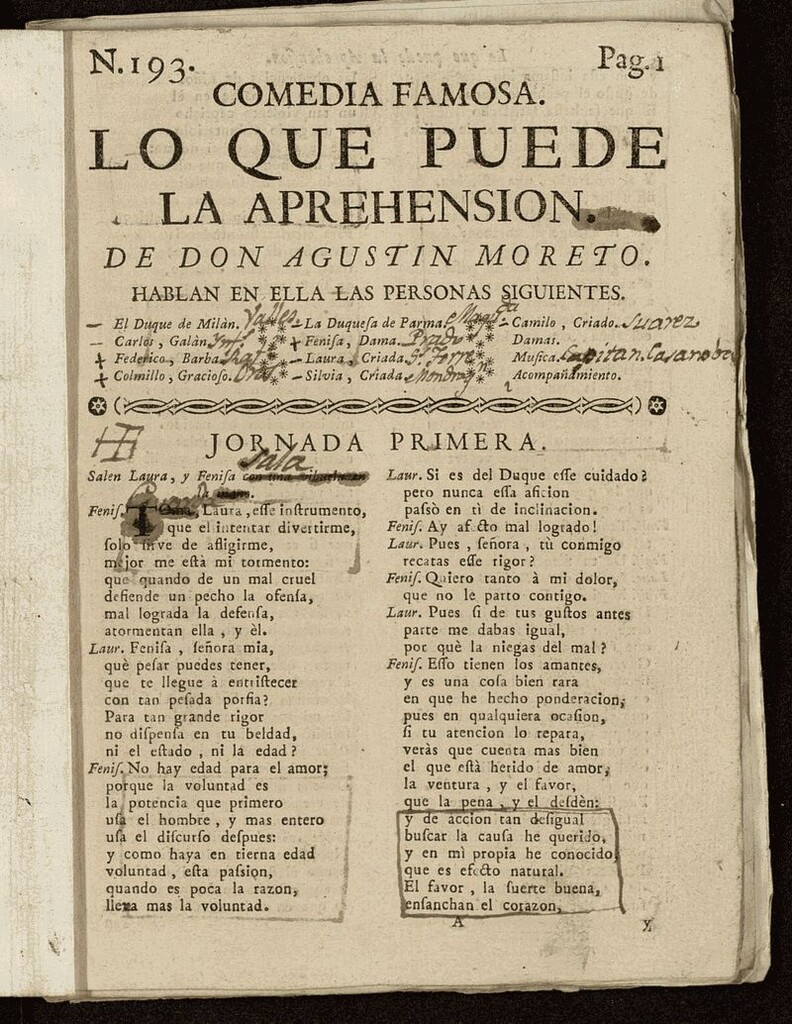 N. 193.
Pag. 1
COMEDIA FAMOSA.
LO QUE PUEDE
LA APREHENSION.
DE DON AGUSTIN MORETO.
HABLAN EN ELLA LAS PERSONAS SIGUIENTES.
— El Duque de Milàn. Valles — La Duqueſa de Parma. — Camilo, Criado. Suarez
— Carlos, Galàn. + Feniſa, Dama. Prado Damas.
+ Federico, Barba. — Laura, Criada. Muſica. Capitan. Casanoba
+ Colmillo, Gracioſo. — Silvia, Criada. Acompañamiento.
JORNADA PRIMERA.
sala
Salen Laura, y Feniſa
Feniſ. Laura, eſſe inſtrumento,
que el intentar divertirme,
ſolo ſirve de afligirme,
mejor me eſtà mi tormento:
que quando de un mal cruel
defiende un pecho la ofenſa,
mal lograda la defenſa,
atormentan ella, y èl.
Laur. Feniſa, ſeñora mia,
què peſar puedes tener,
que te llegue à entriſtecer
con tan peſada porfia?
Para tan grande rigor
no diſpenſa en tu beldad,
ni el eſtado, ni la edad?
Feniſ. No hay edad para el amor;
porque la voluntad es
la potencia que primero
uſa el hombre, y mas entero
uſa el diſcurſo deſpues:
y como haya en tierna edad
voluntad, eſta paſsion,
quando es poca la razon,
lleva mas la voluntad.
Laur. Si es del Duque eſſe cuidado?
pero nunca eſſa aficion
paſsò en tì de inclinacion.
Feniſ. Ay afecto mal logrado!
Laur. Pues, ſeñora, tù conmigo
recatas eſſe rigor?
Feniſ. Quiero tanto à mi dolor,
que no le parto contigo.
Laur. Pues ſi de tus guſtos antes
parte me dabas igual,
por què la niegas del mal?
Feniſ. Eſſo tienen los amantes,
y es una coſa bien rara
en que he hecho ponderacion;
pues en qualquiera ocaſion,
ſi tu atencion lo repara,
veràs que cuenta mas bien
el que eſtà herido de amor,
la ventura, y el favor,
que la pena, y el deſdèn:
y de accion tan deſigual
buſcar la cauſa he querido,
y en mi propia he conocido
que es efecto natural.
El favor, la ſuerte buena,
enſanchan el corazon,
A
y